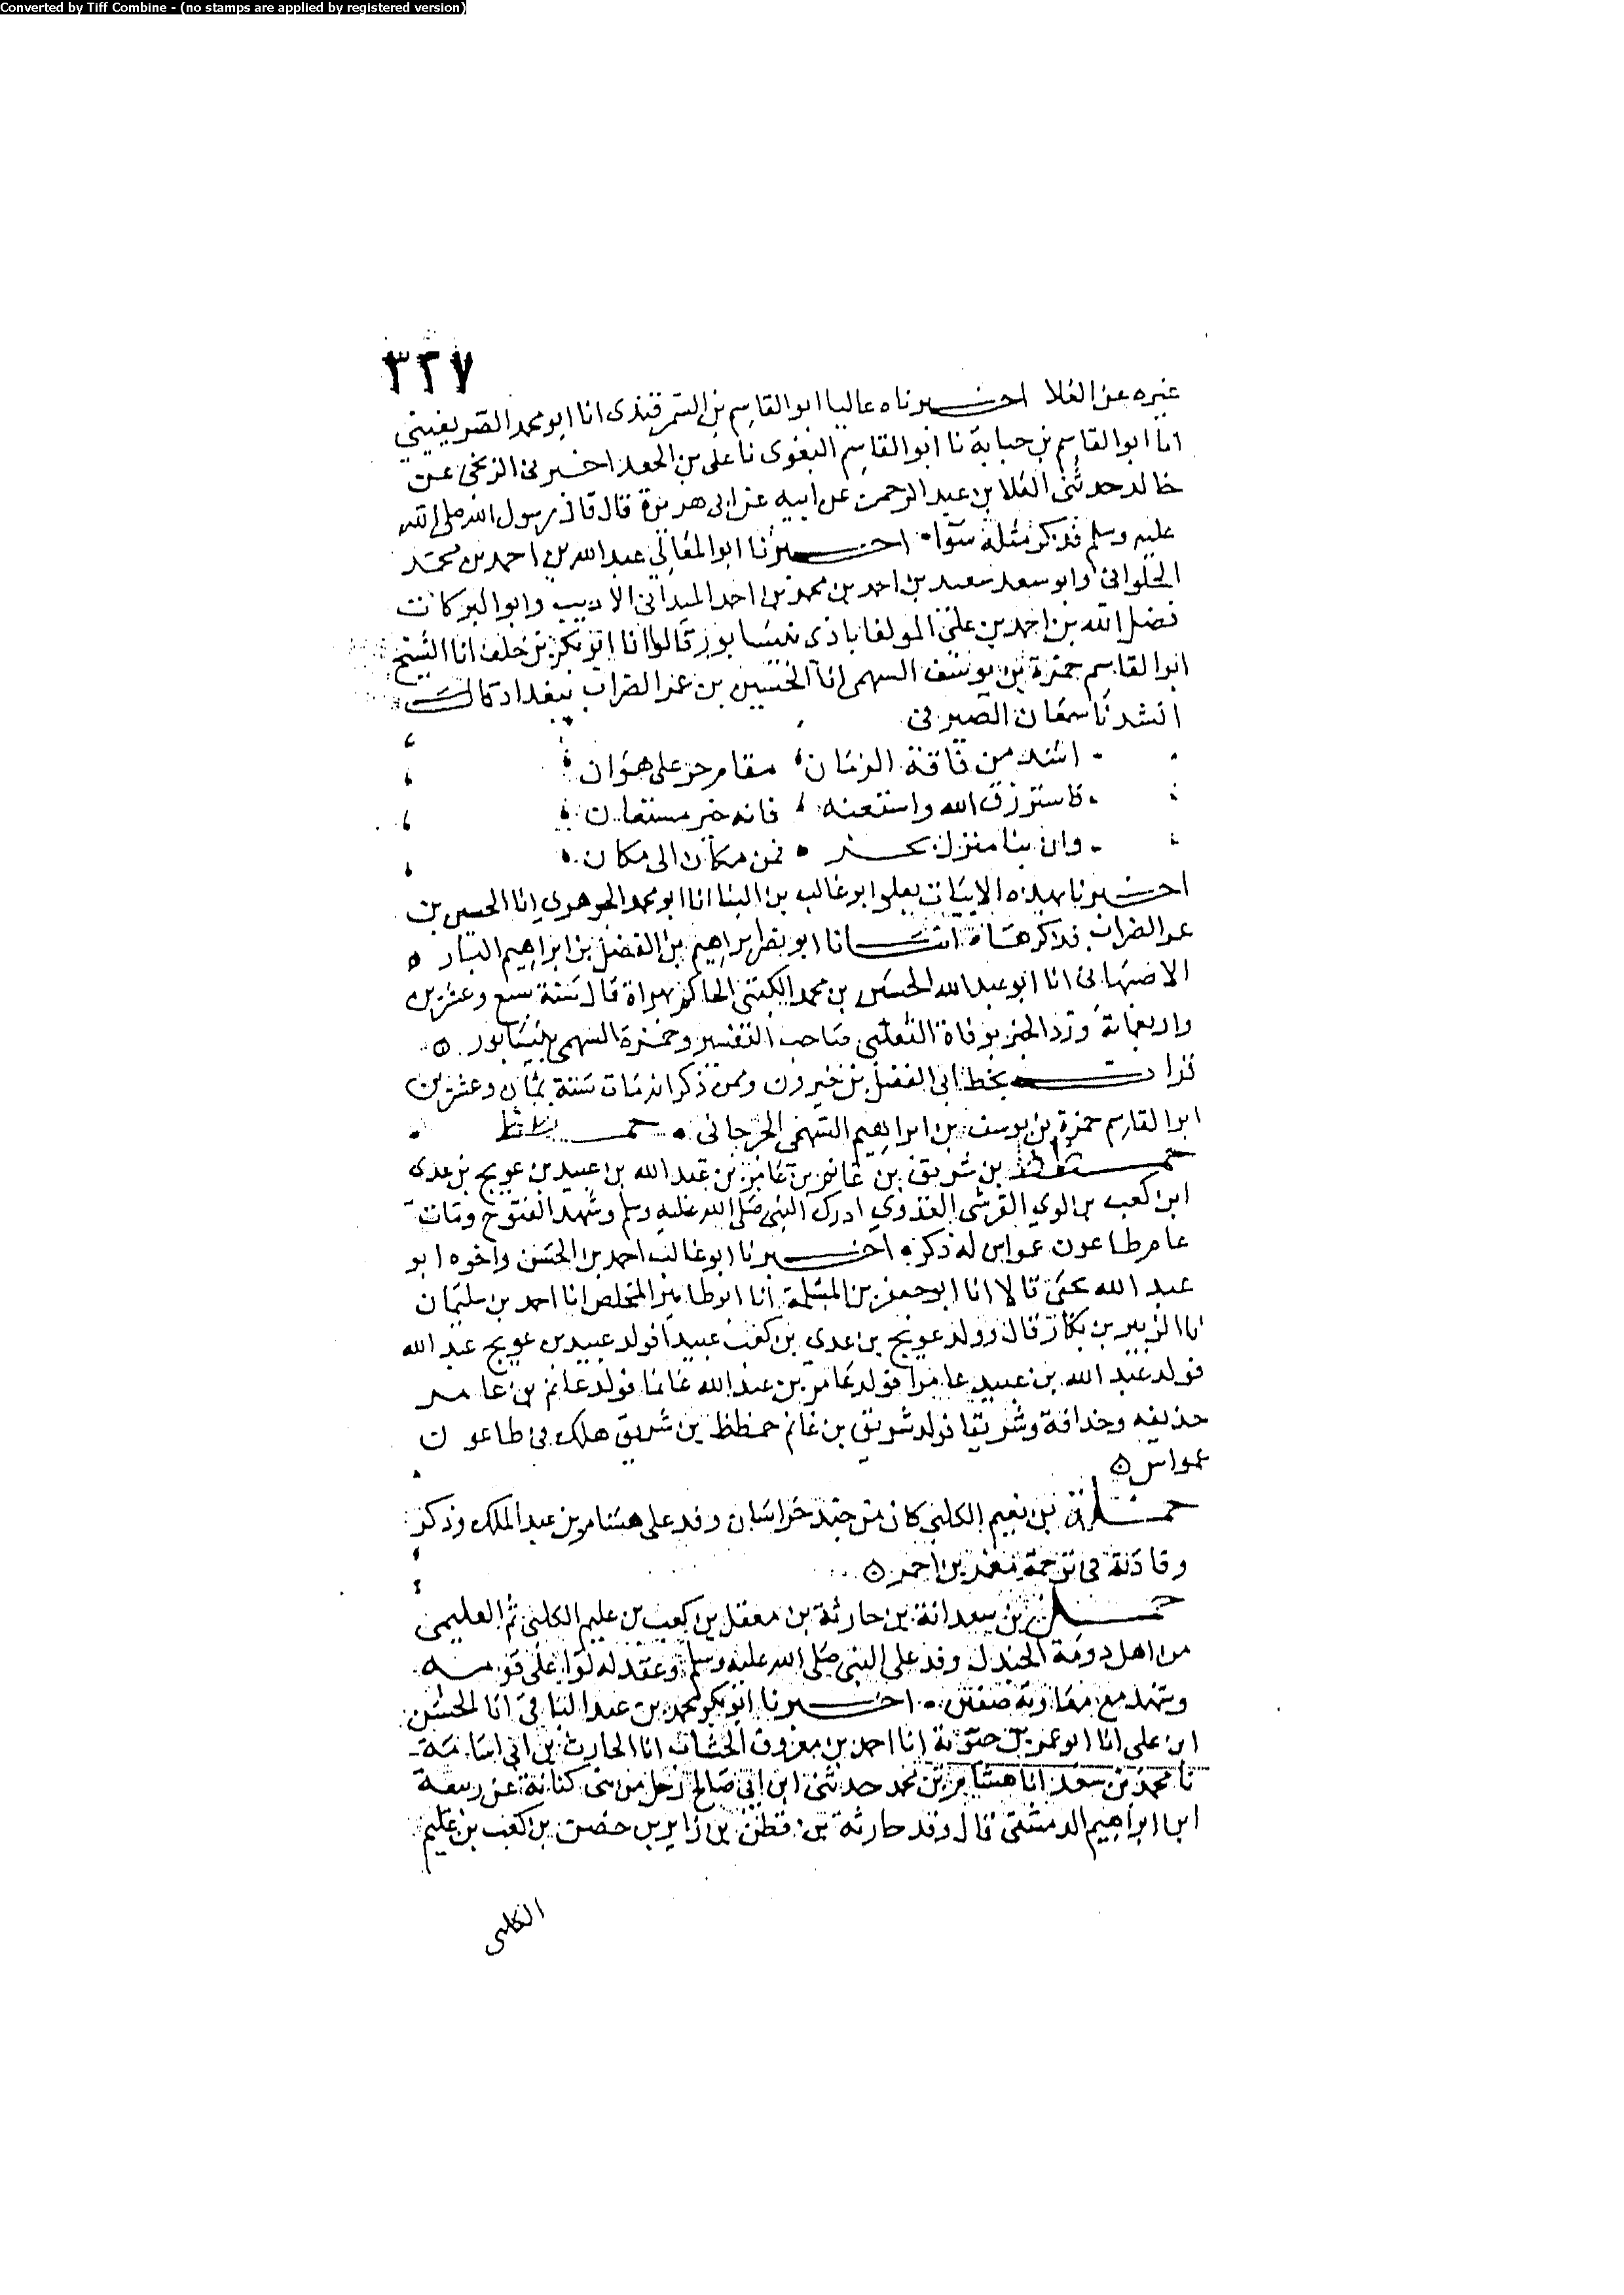 Converted by Tiff Combine - (no stamps are applied by registered version)
٣٢٧
غيره عن العلا اخبرناه عاليا ابو القاسم بن السمرقندى انا ابو محمد الصريفينى
انا ابو القاسم بن حبابة نا ابو القاسم البغوى نا على بن الجعد اخبرنى الزنجى عن
خالد حدثنى العلا بن عبد الرحمن عن ابيه عن ابى هريرة قال قال رسول الله صلى الله
عليه وسلم فذكر مثله سوآ اخبرنا ابو المعالى عبد الله بن احمد بن محمد
الحلوانى وابو سعد سعيد بن احمد بن محمد بن احمد الميدانى الاديب وابو البركات
فضل الله بن احمد بن على المولقاباذى بنيسابور قالوا انا ابو بكر بن خلف انا الشيخ
ابو القاسم حمزة بن يوسف السهمى انا الحسين بن عمر الضراب ببغداد قال
انشدنا سمعان الصيرفى
اشد من فاقة الزمان مقام حر على هوان
فاسترزق الله واستعنه فانه خير مستعان
وان نبا منزل بحر فمن مكان الى مكان
اخبرنا بهذه الابيات بعلو ابو غالب بن البنا انا ابو محمد الجوهرى انا الحسين بن
عمر الضراب فذكرها انبانا ابو نصر ابراهيم بن الفضل بن ابراهيم البار
الاصبهانى انا ابو عبد الله الحسين بن محمد الكتبى الحاكم بهراة قال سنة سبع وعشرين
واربعمائة ورد الخبر بوفاة الثعلبى صاحب التفسير وحمزة السهمى بنيسابور
قرات بخط ابى الفضل بن خيرون وممن ذكر انه مات سنة ثمان وعشرين
ابو القاسم حمزة بن يوسف بن ابراهيم السهمى الجرجانى حمظظ
حمظظ بن شريق بن غانم بن عامر بن عبد الله بن عبيد بن عويج بن عدى
ابن كعب بن لوي القرشى العدوي ادرك النبى صلى الله عليه وسلم وشهد الفتوح ومات
عام طاعون عمواس له ذكر اخبرنا ابو غالب احمد بن الحسن واخوه ابو
عبد الله يحيى قالا انا ابو جعفر بن المسلمة انا ابو طاهر المخلص انا احمد بن سليمان
انا الزبير بن بكار قال وولد عويج بن عدى بن كعب عبيدا فولد عبيد بن عويج عبد الله
فولد عبد الله بن عبيد عامرا فولد عامر بن عبد الله غانما فولد غانم بن عامر
حذيفه وحذافة وشريقا فولد شريق بن غانم حمظظ بن شريق هلك فى طاعون
عمواس
بن نعيم الكلبى كان من جند خراسان وفد على هشام بن عبد الملك وذكر
وفادته فى ترجمة بن احمر
حمل بن سعدانة بن حارثة بن معقل بن كعب بن عليم الكلبى ثم العليمى
من اهل دومة الجندل وفد على النبى صلى الله عليه وسلم وعقد له لوآ على قومه
وشهد مع معاوية صفين اخبرنا ابو بكر محمد بن عبد الباقى انا الحسن
ابن على انا ابو عمر بن حيوية انا احمد بن معروف الخشاب انا الحارث بن ابى اسامة
نا محمد بن سعد انا هشام بن محمد حدثنى ابن ابى صالح رجل من بنى كنانة عن ربيعة
ابن ابراهيم الدمشقى قال وفد حارثة بن قطن بن زاير بن حصن بن كعب بن عليم
الكلبى